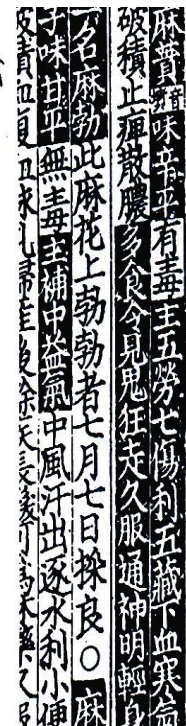 麻蕡音墳味辛平有毒主五勞七傷利五藏下血寒氣
破積止痺散膿多食令見鬼狂走久服通神明輕身
一名麻勃此麻花上勃勃者七月七日採良〇麻
子味甘平無毒主補中益氣中風汗出逐水利小便
破積血復血脉乳婦產後餘疾長髮可為沐藥久服